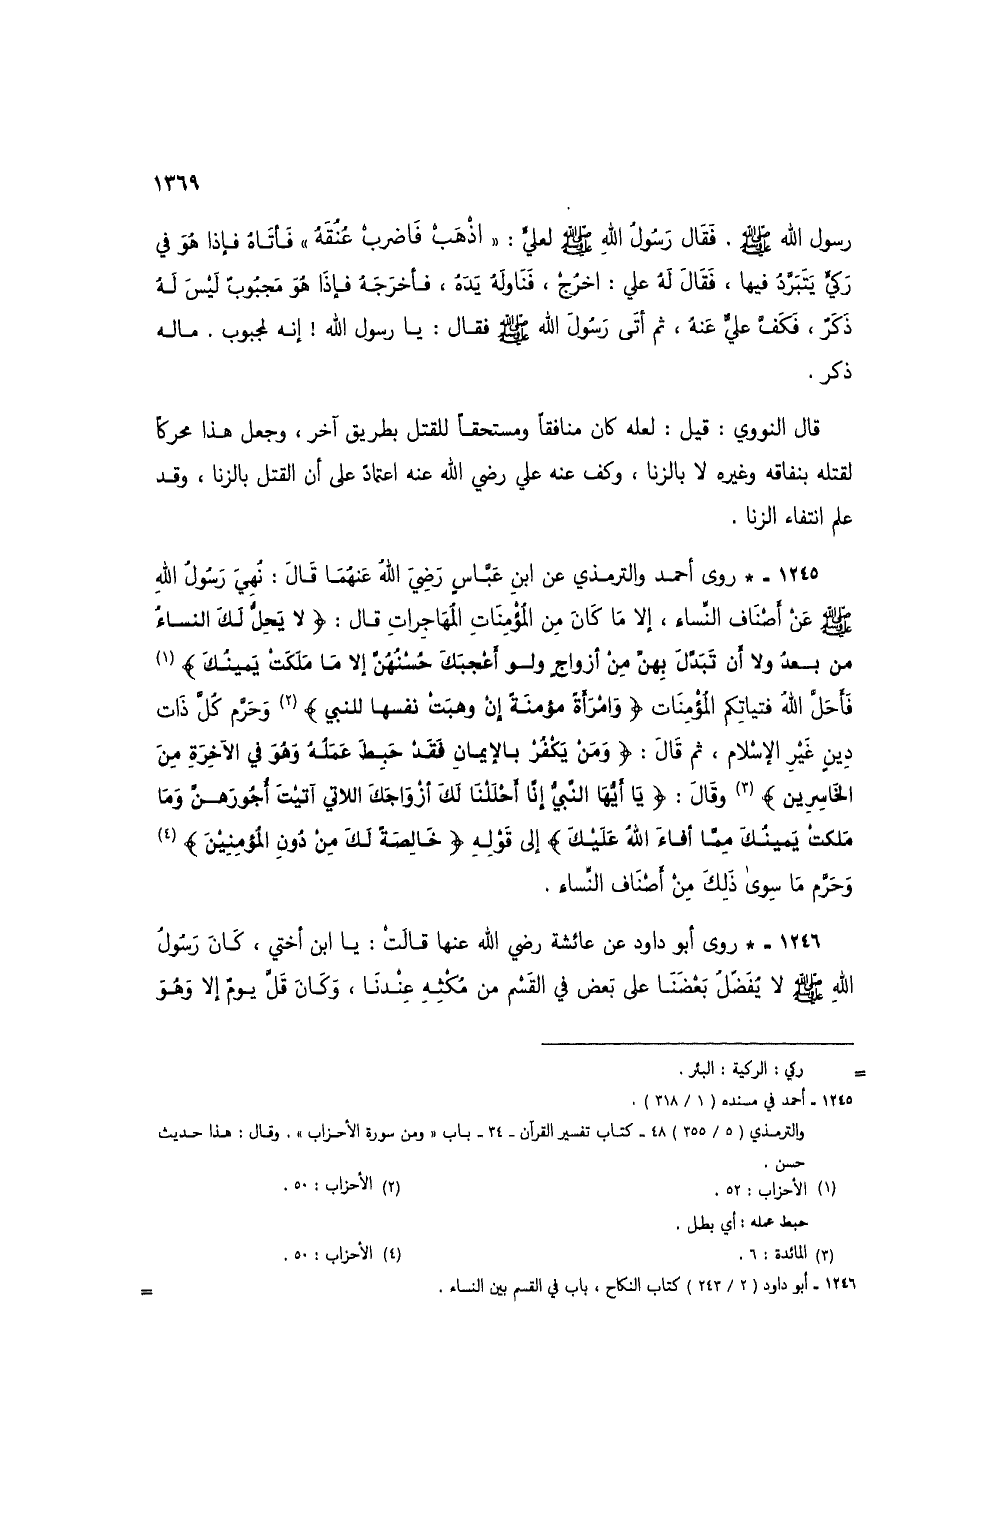 ١٣٦٩
رسول الله ﷺ . فَقَال رَسُولُ اللهِ ﷺ لعليٍّ : « اذْهَبْ فَاضرِبْ عُنُقَهُ » فَأتَاهُ فإذا هُوَ في
رَكيٍّ يَتَبَرَّدُ فيها ، فَقَالَ لَهُ علي : اخرُجْ ، فَنَاولَهُ يَدَهُ ، فأخرَجَهُ فإذَا هُوَ مَجبُوبٌ لَيْسَ لَهُ
ذَكَرٌ ، فَكَفَّ عليٌّ عَنهُ ، ثم أتَى رَسُولَ الله ﷺ فقال : يا رسول الله ! إنه لمجبوب . ماله
ذكر .
قال النووي : قيل : لعله كان منافقاً ومستحقاً للقتل بطريق آخر ، وجعل هذا محركاً
لقتله بنفاقه وغيره لا بالزنا ، وكف عنه علي رضي الله عنه اعتمادً على أن القتل بالزنا ، وقد
علم انتفاء الزنا .
١٢٤٥ - * روى أحمد والترمذي عن ابنِ عَبَّاسٍ رَضِيَ اللهُ عَنهُمَا قَالَ : نُهِيَ رَسُولُ اللهِ
ﷺ عَنْ أَصْنَاف النِّساء ، إلا مَا كَانَ مِن المُؤْمِنَاتِ المُهَاجراتِ قال : ﴿ لا يَحِلُّ لَكَ النساءُ
من بعدُ ولا أن تَبَدَّلَ بِهنَّ مِنْ أزواجٍ ولو أعْجبَكَ حُسْنُهُنَّ إلا مَا مَلَكَتْ يَمينُكَ ﴾ (١)
فَأَحَلَّ اللهُ فتياتِكم المُؤْمِنَات ﴿ وَامْرَأَةً مؤمنَةً إنْ وهبَتْ نفسها للنبي ﴾ (٢) وَحَرَّم كُلَّ ذَات
دِينٍ غَيْرِ الإسْلام ، ثم قَالَ : ﴿ وَمَنْ يَكْفُرْ بالإيمانِ فَقَدْ حَبِطَ عَمَلُهُ وَهُوَ في الآخِرَةِ مِنَ
الخَاسِرِين ﴾ (٣) وقَالَ : ﴿ يَا أَيُّهَا النَّبيُّ إنَّا أَحْلَلْنَا لَكَ أزْوَاجَكَ اللاتي آتيْتَ أُجُورَهنَّ وَمَا
مَلكتْ يَمينُكَ مِمَّا أفاءَ اللهُ عَلَيْكَ ﴾ إلى قَوْلِهِ ﴿ خَالِصَةً لَكَ مِنْ دُونِ المُؤمِنِيْنَ ﴾ (٤)
وَحَرَّم مَا سِوىٰ ذَلِكَ مِنْ أَصْنَاف النِّساء .
١٢٤٦ - * روى أبو داود عن عائشة رضي الله عنها قالَتْ : يا ابن أختي ، كَانَ رَسُولُ
اللهِ ﷺ لا يُفَضِّلُ بَعْضَنَا على بَعض في القَسْم من مُكْثِهِ عِنْدنَا ، وَكَانَ قَلَّ يومٌ إلا وَهُوَ
= ركي : الركية : البئر .
١٢٤٥ - أحمد في مسنده ( ١ / ٣١٨ ) .
والترمذي ( ٥ / ٣٥٥ ) ٤٨ - كتاب تفسير القرآن - ٣٤ - باب « ومن سورة الأحزاب » . وقال : هذا حديث
حسن .
(١) الأحزاب : ٥٢ . (٢) الأحزاب : ٥٠ .
حبط عمله : أي بطل .
(٣) المائدة : ٦ . (٤) الأحزاب : ٥٠ .
١٢٤٦ - أبو داود ( ٢ / ٢٤٣ ) كتاب النكاح ، باب في القسم بين النساء . =